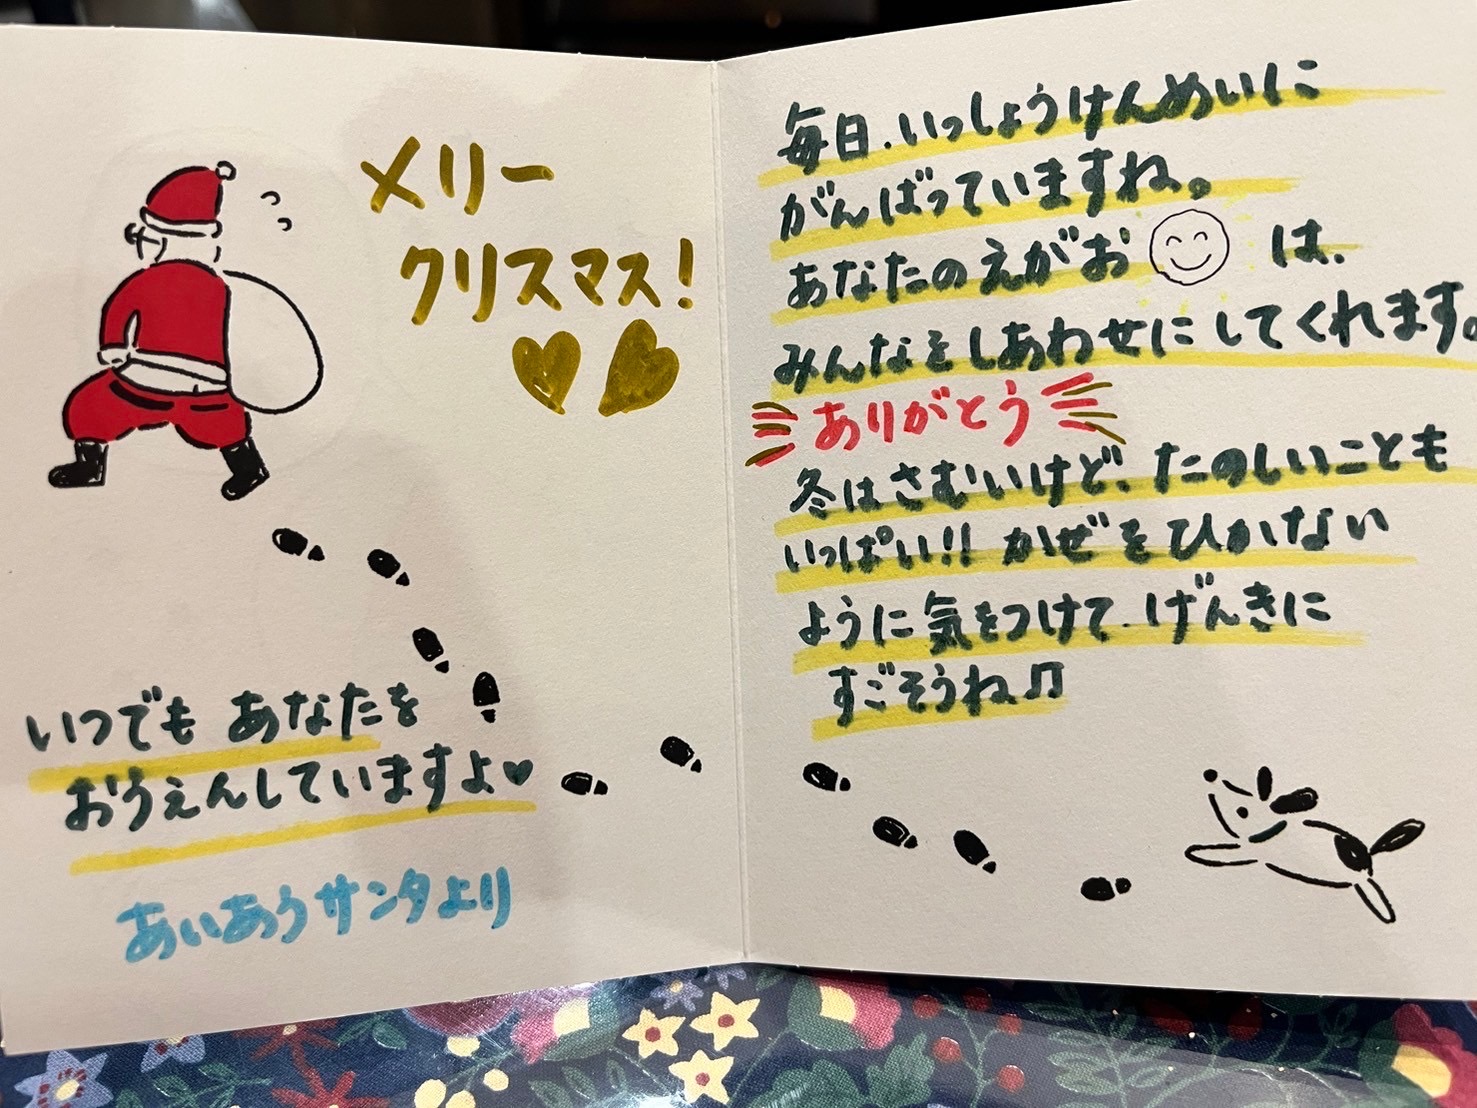 メリー
クリスマス!
いつでも あなたを
おうえんしていますよ♥
あいあうサンタより
毎日、いっしょうけんめいに
がんばっていますね。
あなたのえがお は、
みんなをしあわせにしてくれます。
ありがとう
冬はさむいけど、たのしいことも
いっぱい!! かぜをひかない
ように気をつけて、げんきに
すごそうね♫